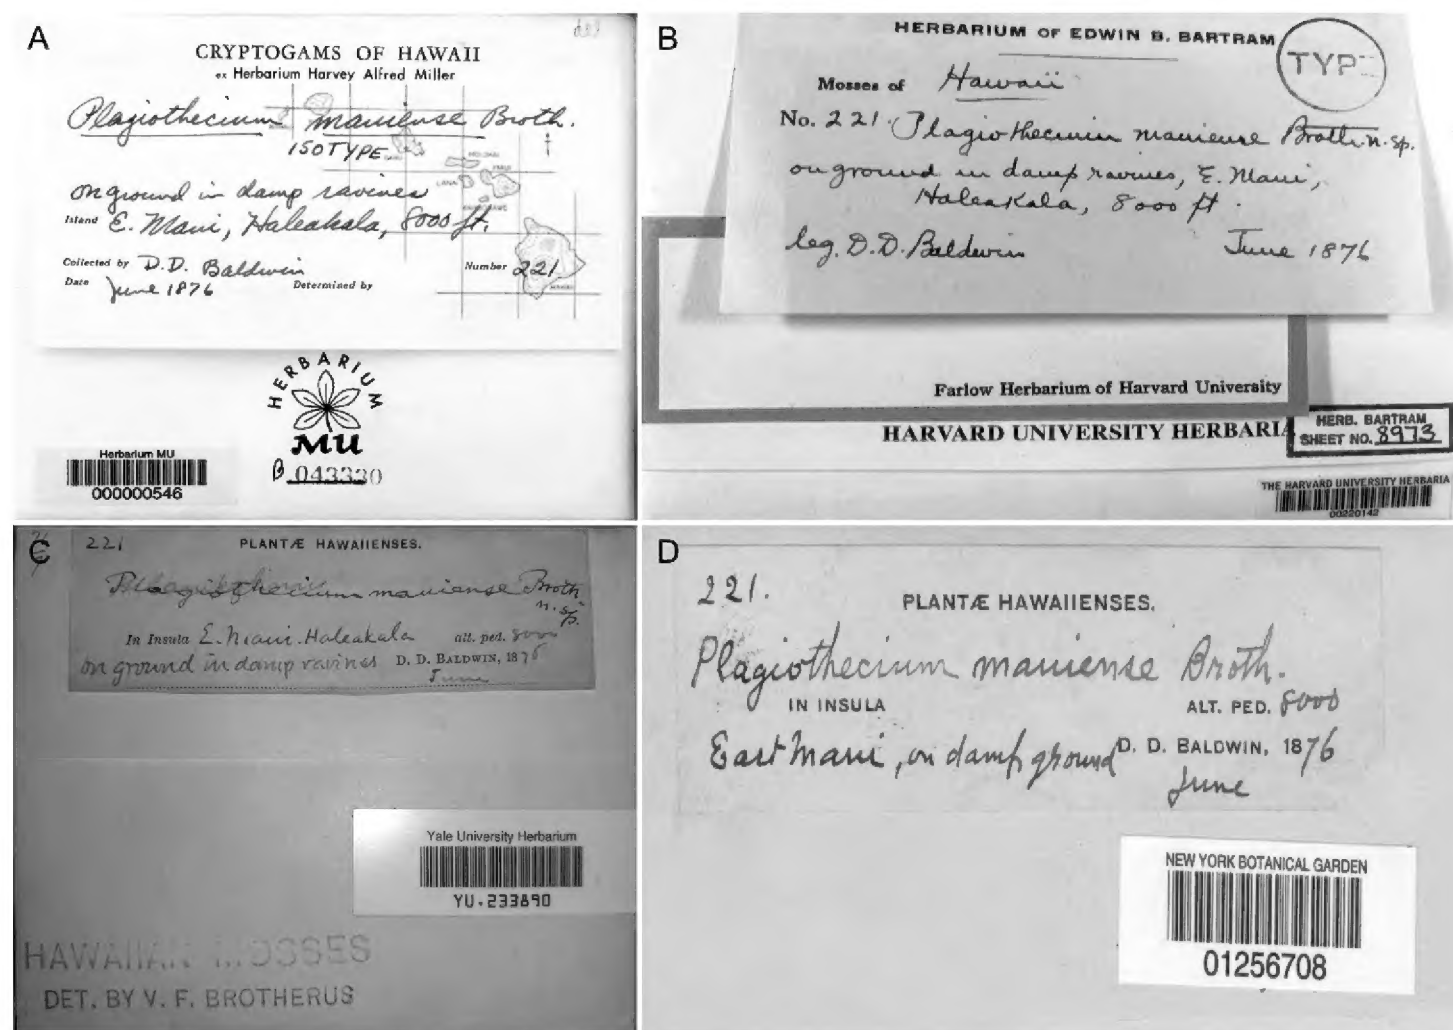 A
CRYPTOGAMS OF HAWAII
ex Herbarium Harvey Alfred Miller
Plagiothecium mauiense Broth.
ISOTYPE
on ground in damp ravines
Island E. Maui, Haleakala, 8000 ft.
Collected by D.D. Baldwin
Number 221
Date June 1876 Determined by
HERBARIUM
MU
Herbarium MU
000000546
B 043330
B
HERBARIUM OF EDWIN B. BARTRAM
TYPE
Mosses of Hawaii
No. 221. Plagiothecium mauiense Broth. n. sp.
on ground in damp ravines, E. Maui,
Haleakala, 8000 ft.
leg. D.D. Baldwin June 1876
Farlow Herbarium of Harvard University
HARVARD UNIVERSITY HERBARIA
HERB. BARTRAM
SHEET NO. 8973
THE HARVARD UNIVERSITY HERBARIA
00220142
C
221 PLANTÆ HAWAIIENSES.
Plagiothecium mauiense Broth
n. sp.
In Insula E. Maui. Haleakala alt. ped. 8000
on ground in damp ravines D. D. BALDWIN, 1876
June
Yale University Herbarium
YU.233890
HAWAIIAN MOSSES
DET. BY V. F. BROTHERUS
D
221.
PLANTÆ HAWAIIENSES.
Plagiothecium mauiense Broth.
IN INSULA ALT. PED. 8000
East Maui, on damp ground D. D. BALDWIN, 1876
June
NEW YORK BOTANICAL GARDEN
01256708